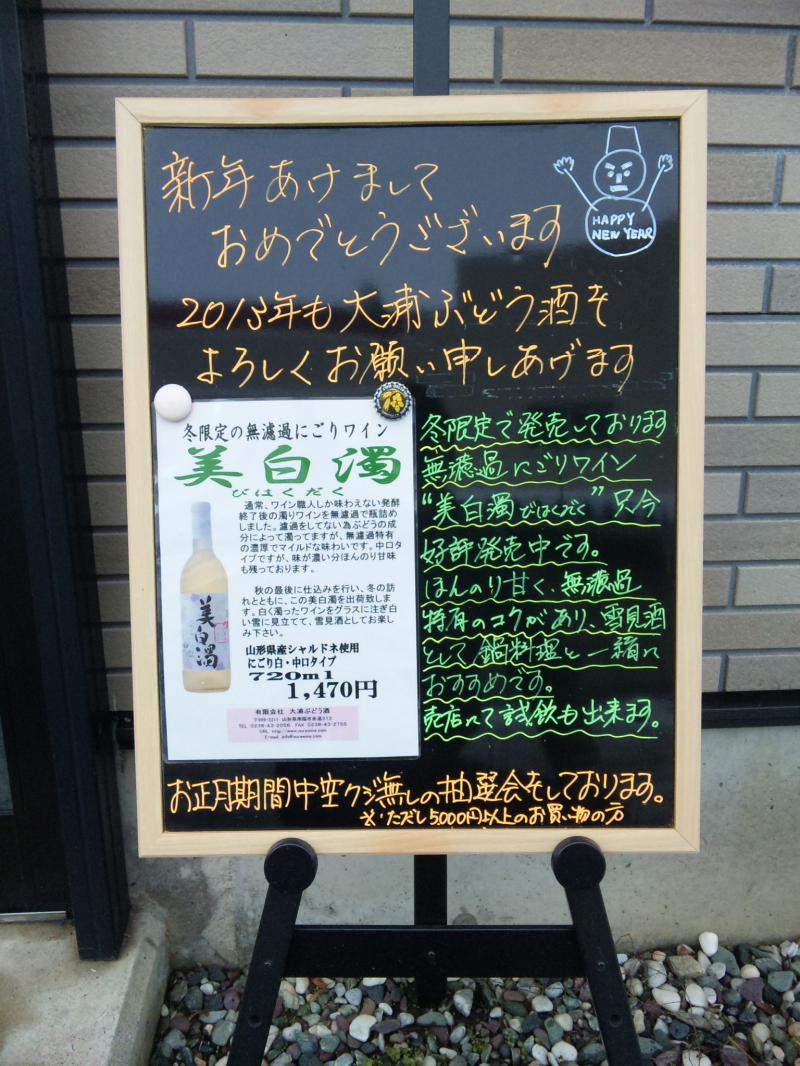 新年あけまして
おめでとうございます
HAPPY
NEW YEAR
2013年も大浦ぶどう酒を
よろしくお願い申しあげます
冬限定の無濾過にごりワイン
美白濁
びはくだく
通常、ワイン職人しか味わえない発酵
終了後の濁りワインを無濾過で瓶詰め
しました。濾過をしてない為ぶどうの成
分によって濁ってますが、無濾過特有
の濃厚でマイルドな味わいです。中口タ
イプですが、味が濃い分ほんのり甘味
も残っております。
秋の最後に仕込みを行い、冬の訪
れとともに、この美白濁を出荷致しま
す。白く濁ったワインをグラスに注ぎ白
い雪に見立てて、雪見酒としてお楽し
み下さい。
山形県産シャルドネ使用
にごり白・中口タイプ
720ml
1,470円
美白濁
有限会社 大浦ぶどう酒
山形県南陽市赤湯312
TEL 0238-43-2056 FAX 0238-43-2755
冬限定で発売しております
無濾過にごりワイン
"美白濁びはくだく"只今
好評発売中です。
ほんのり甘く、無濾過
特有のコクがあり、雪見酒
として鍋料理と一緒に
おすすめです。
売店にて試飲も出来ます。
お正月期間中空クジ無しの抽選会をしております。
※ただし5,000円以上のお買い物の方